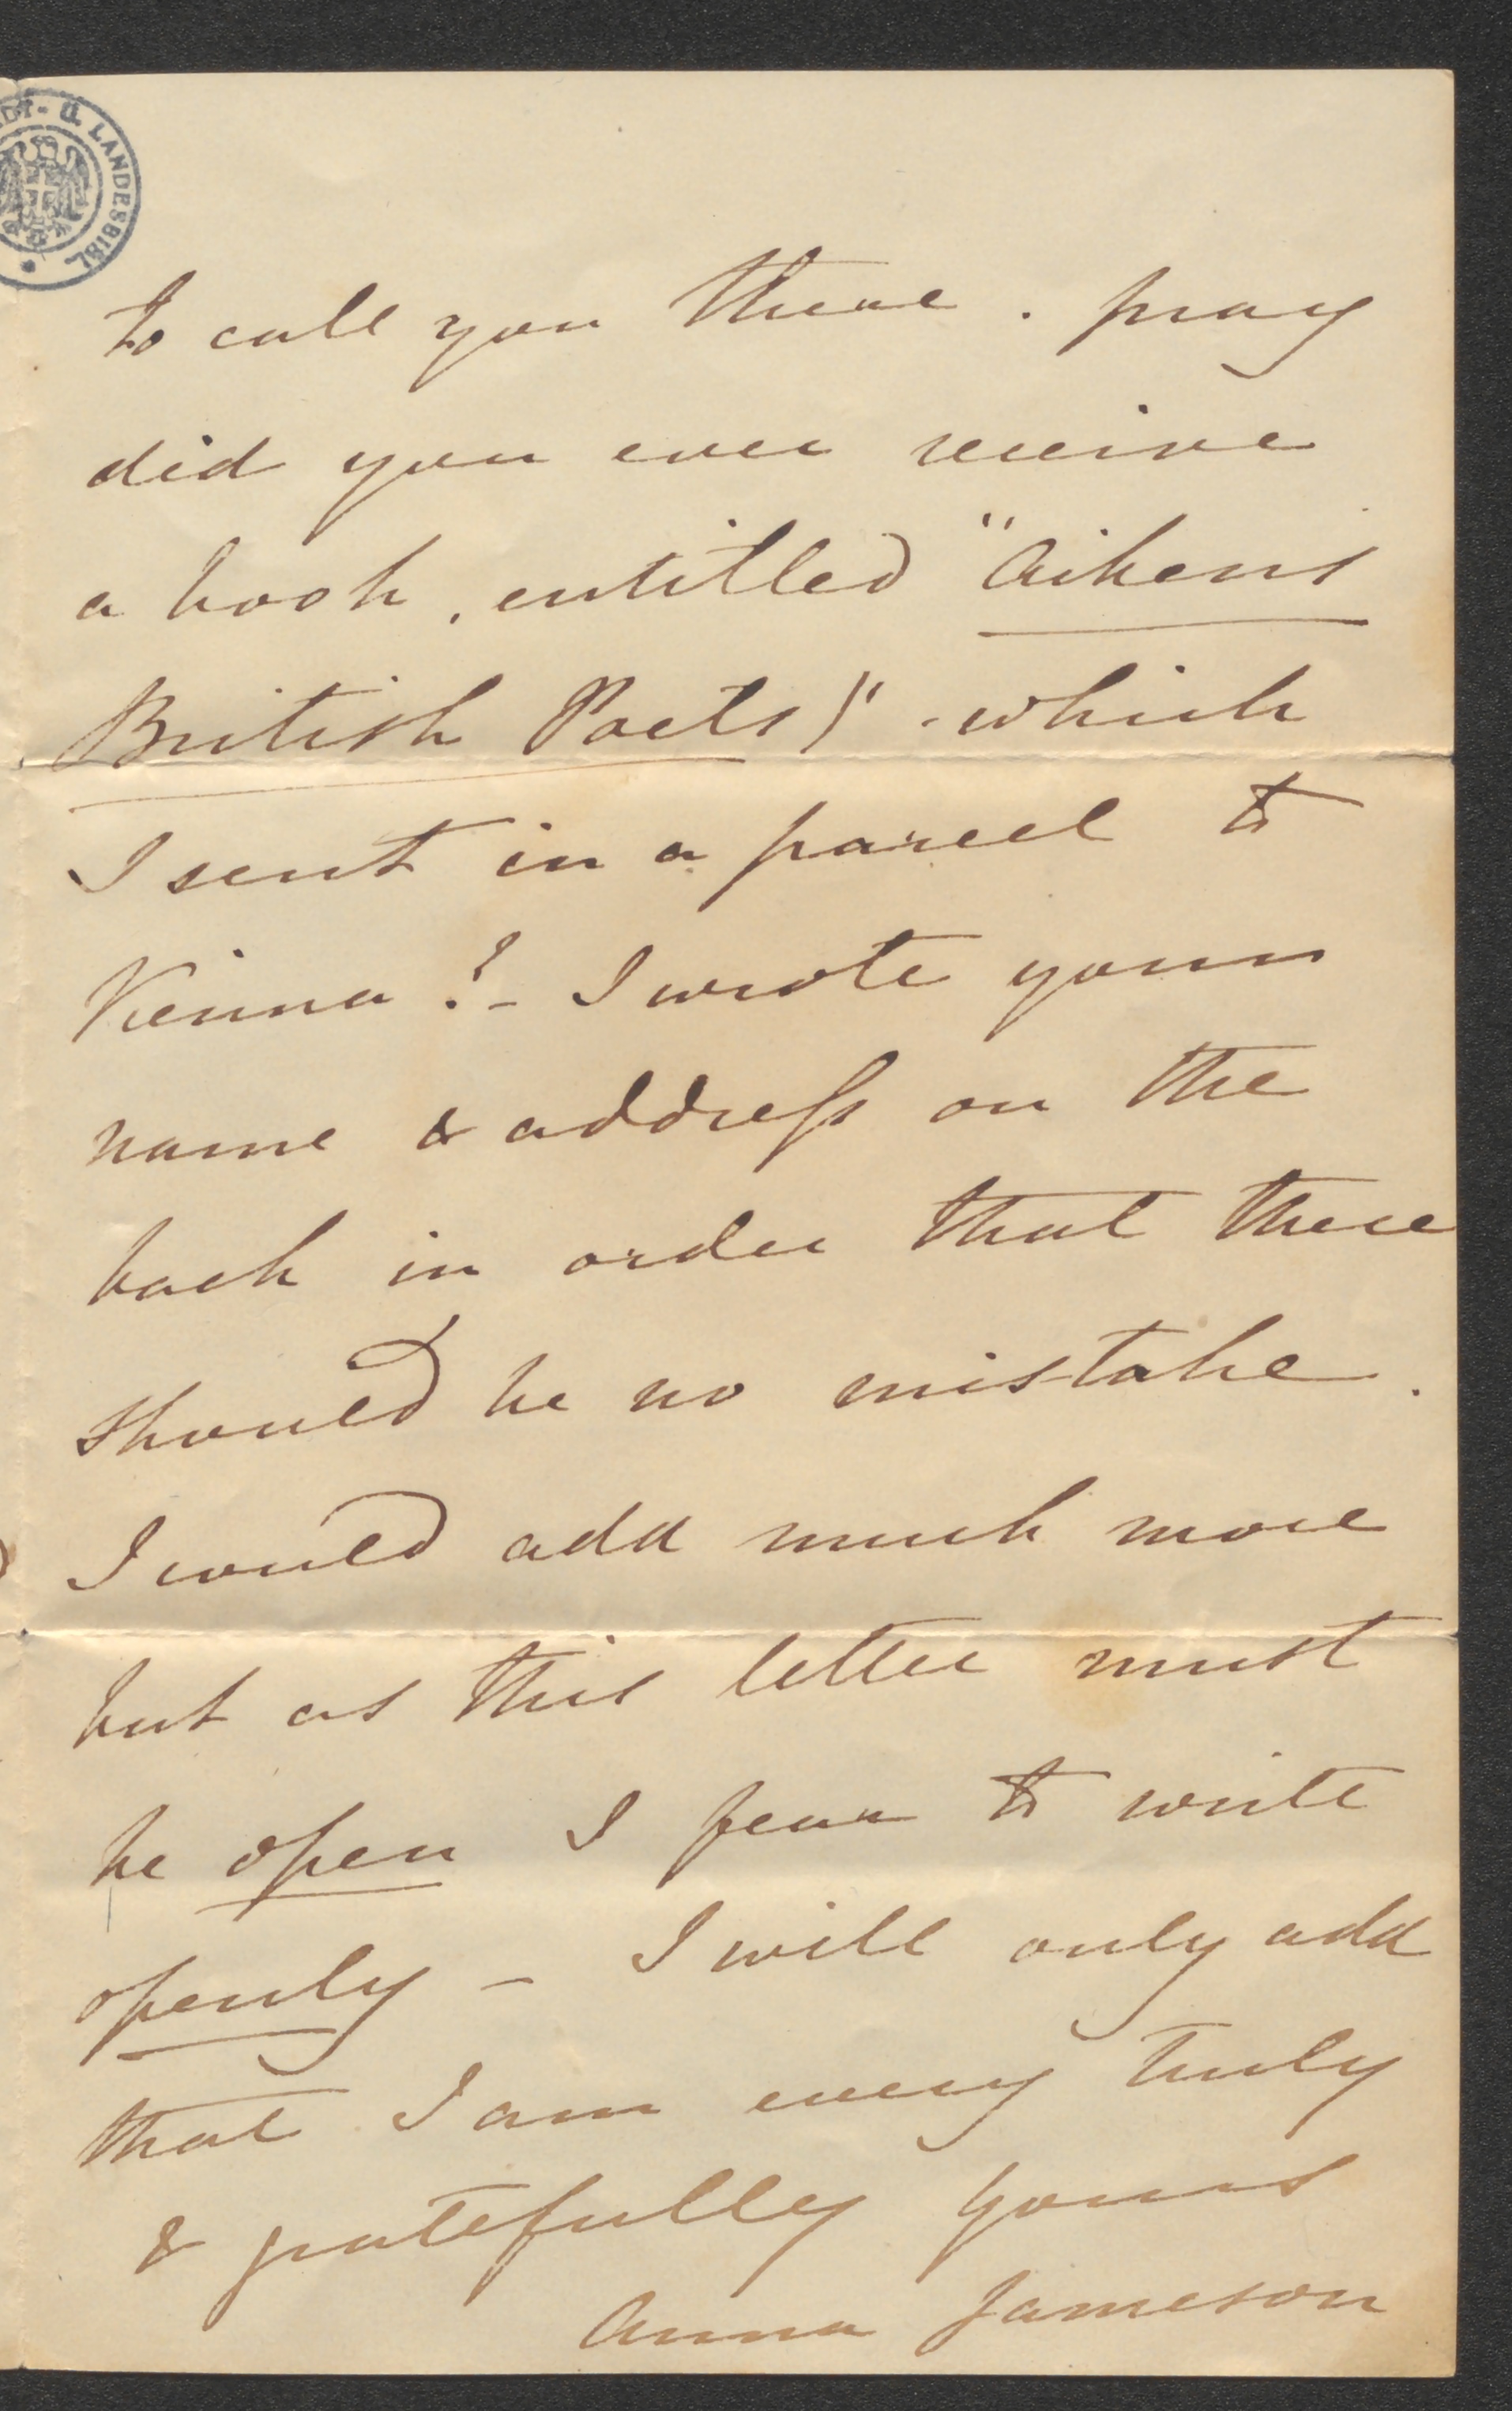 DT- U. LANDESBIBL.
to call you there. pray
did you ever receive
a book, entitled "Aikens
British Poets)" - which
I sent in a parcel to
Vienna? - I wrote your
name & address on the
back in order that there
should be no mistake.
I would add much more
but as this letter must
be open I fear to write
openly - I will only add
that I am every truly
& gratefully yours
Anna Jameson